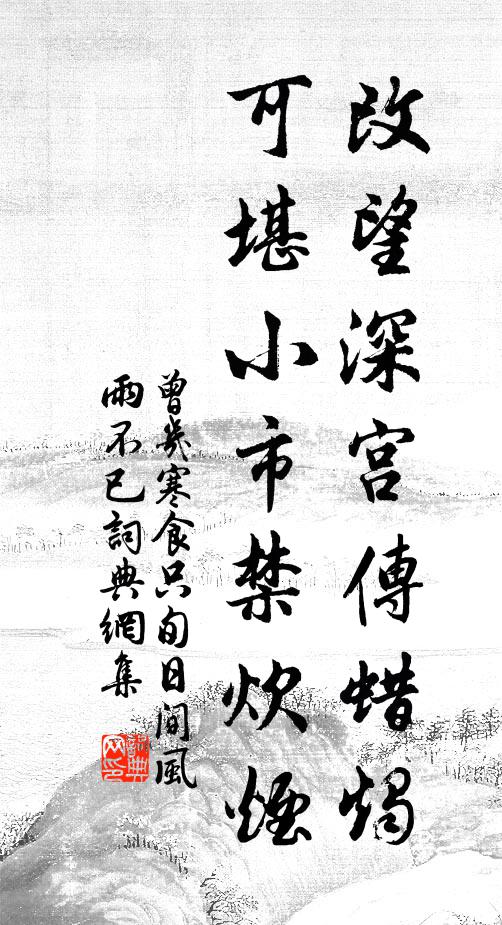 改望深宫傳蜡燭
可堪小市禁炊煙
曾幾寒食只旬日間風
雨不已詞典網集
詞典
网印